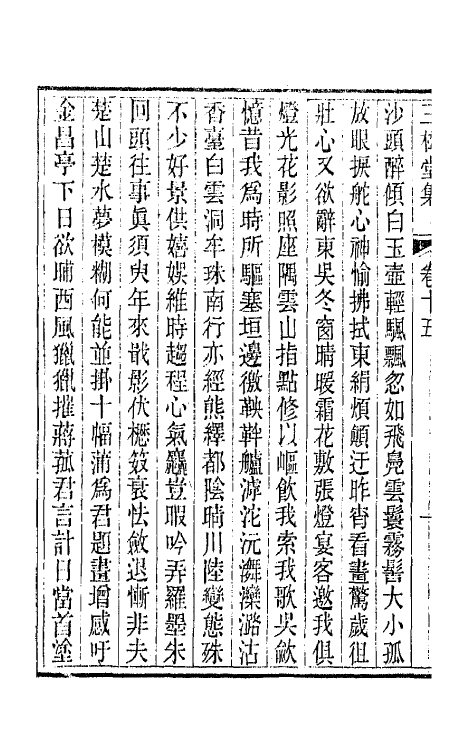 卷十五
沙頭醉傾白玉壺輕颿飄忽如飛鳧雲鬟霧髻大小孤
放眼捩舵心神愉拂拭東絹煩顧迂昨宵看畫驚歲徂
壯心又欲辭東吳冬窗晴暖霜花敷張燈宴客邀我俱
燈光花影照座隅雲山指點修以嶇飲我索我歌吳歈
憶昔我爲時所驅塞垣邊徼鞅靽艫滹沱沅澦灤潞沽
香臺白雲洞牟珠南行亦經熊繹都陰晴川陸變態殊
不少好景供嬉娛維時趨程心氣麤豈暇吟弄羅墨朱
回頭往事眞須臾年來戢影伏櫪笯衰怯斂退慚非夫
楚山楚水夢模糊何能並掛十幅蒲爲君題畫增感吁
金昌亭下日欲晡西風獵獵摧蔣菰君言計日當首塗